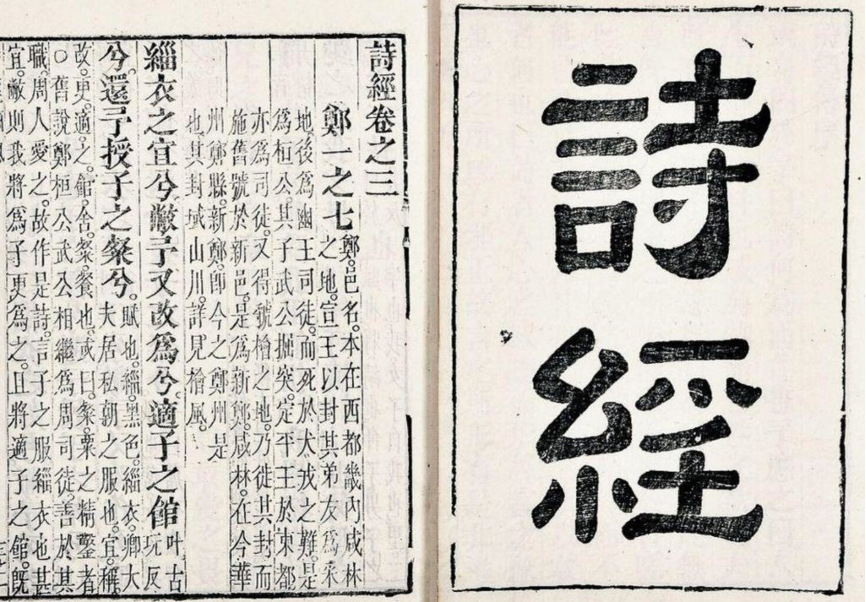 詩經
詩經卷之三
鄭一之七
鄭。邑名。本在西都畿內咸林
之地。宣王以封其弟友爲采
地。後爲幽王司徒。而死於犬戎之難。是
爲桓公。其子武公掘突。定平王於東都
亦爲司徒。又得虢檜之地。乃徙其封而
施舊號於新邑。是爲新鄭。咸林。在今華
州鄭縣。新鄭。卽今之鄭州是
也。其封域山川。詳見檜風。
緇衣之宜兮。敝予又改爲兮。適子之館
叶古
玩反
兮。還予授子之粲兮。
賦也。緇。黑色。緇衣。卿大
夫居私朝之服也。宜。稱。
改。更。適。之。館。舍。粲。餐也。或曰。粲。粟之精鑿者
○舊說鄭桓公武公相繼爲周司徒。善於其
職。周人愛之。故作是詩。言子之服緇衣也。甚
宜。敝則我將爲子更爲之。且將適子之館。旣